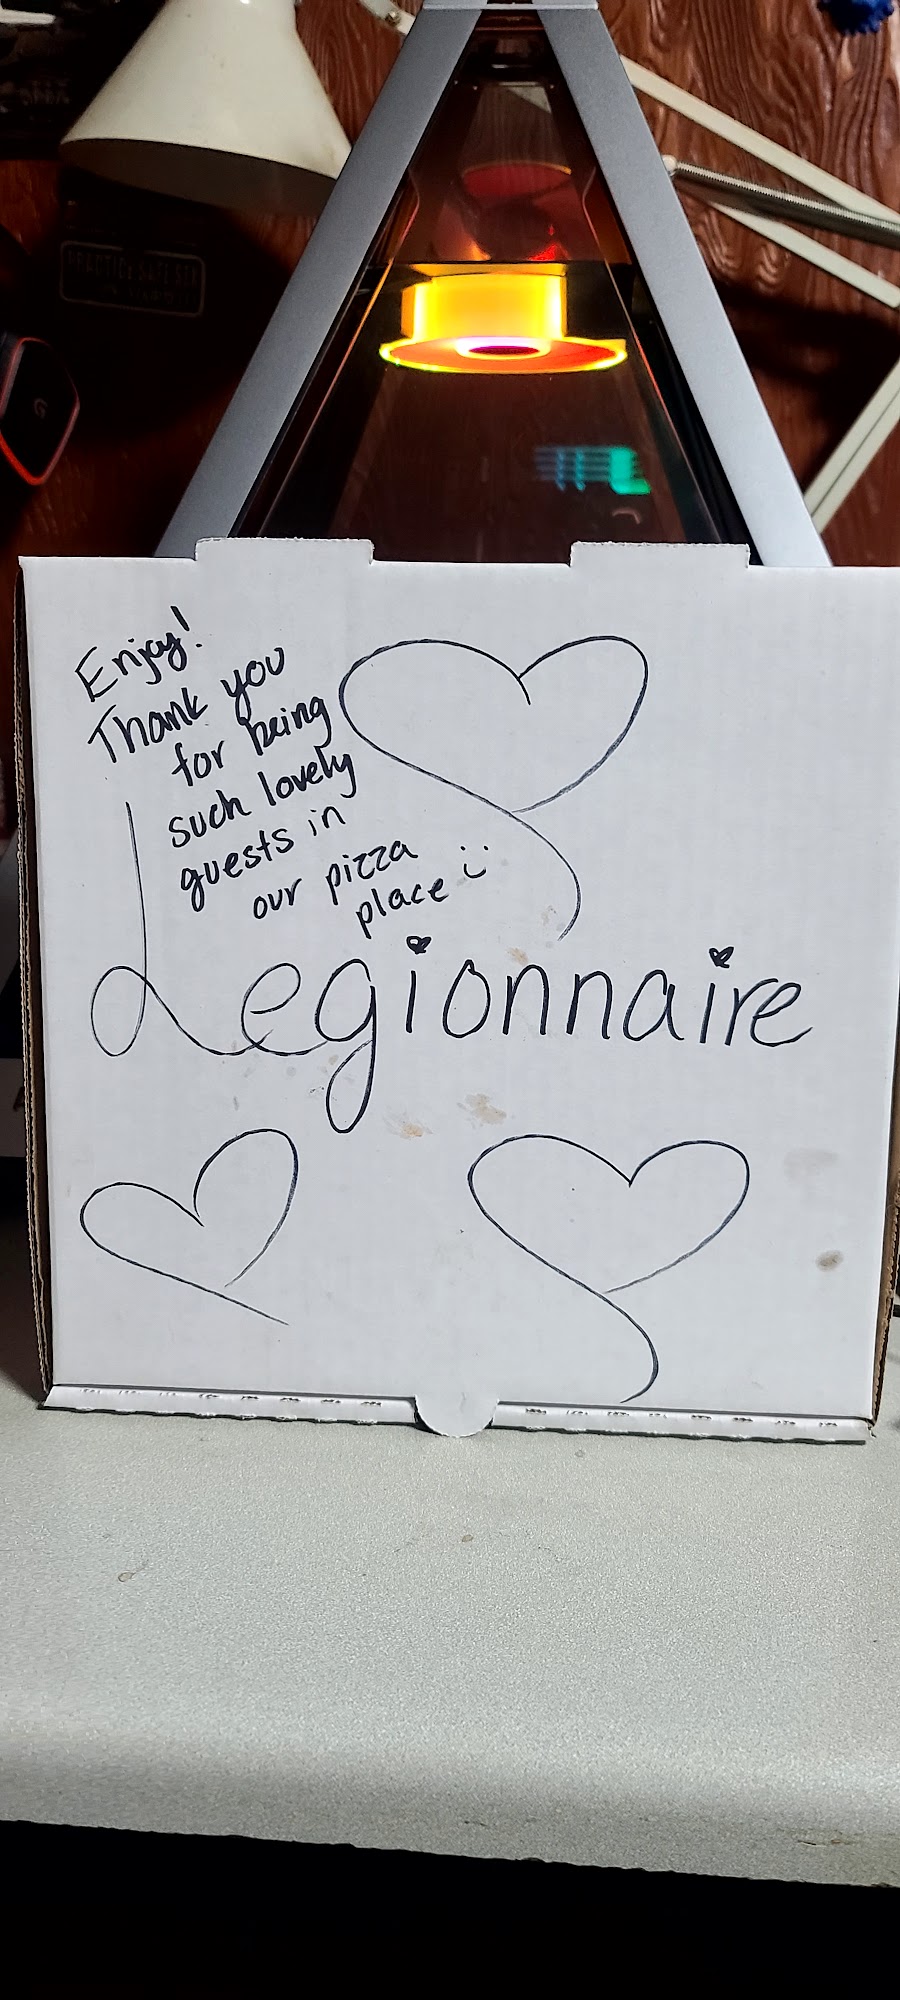 PRACTICE SAFE SEX
G
Enjoy!
Thank you
for being
such lovely
guests in
our pizza
place :)
Legionnaire